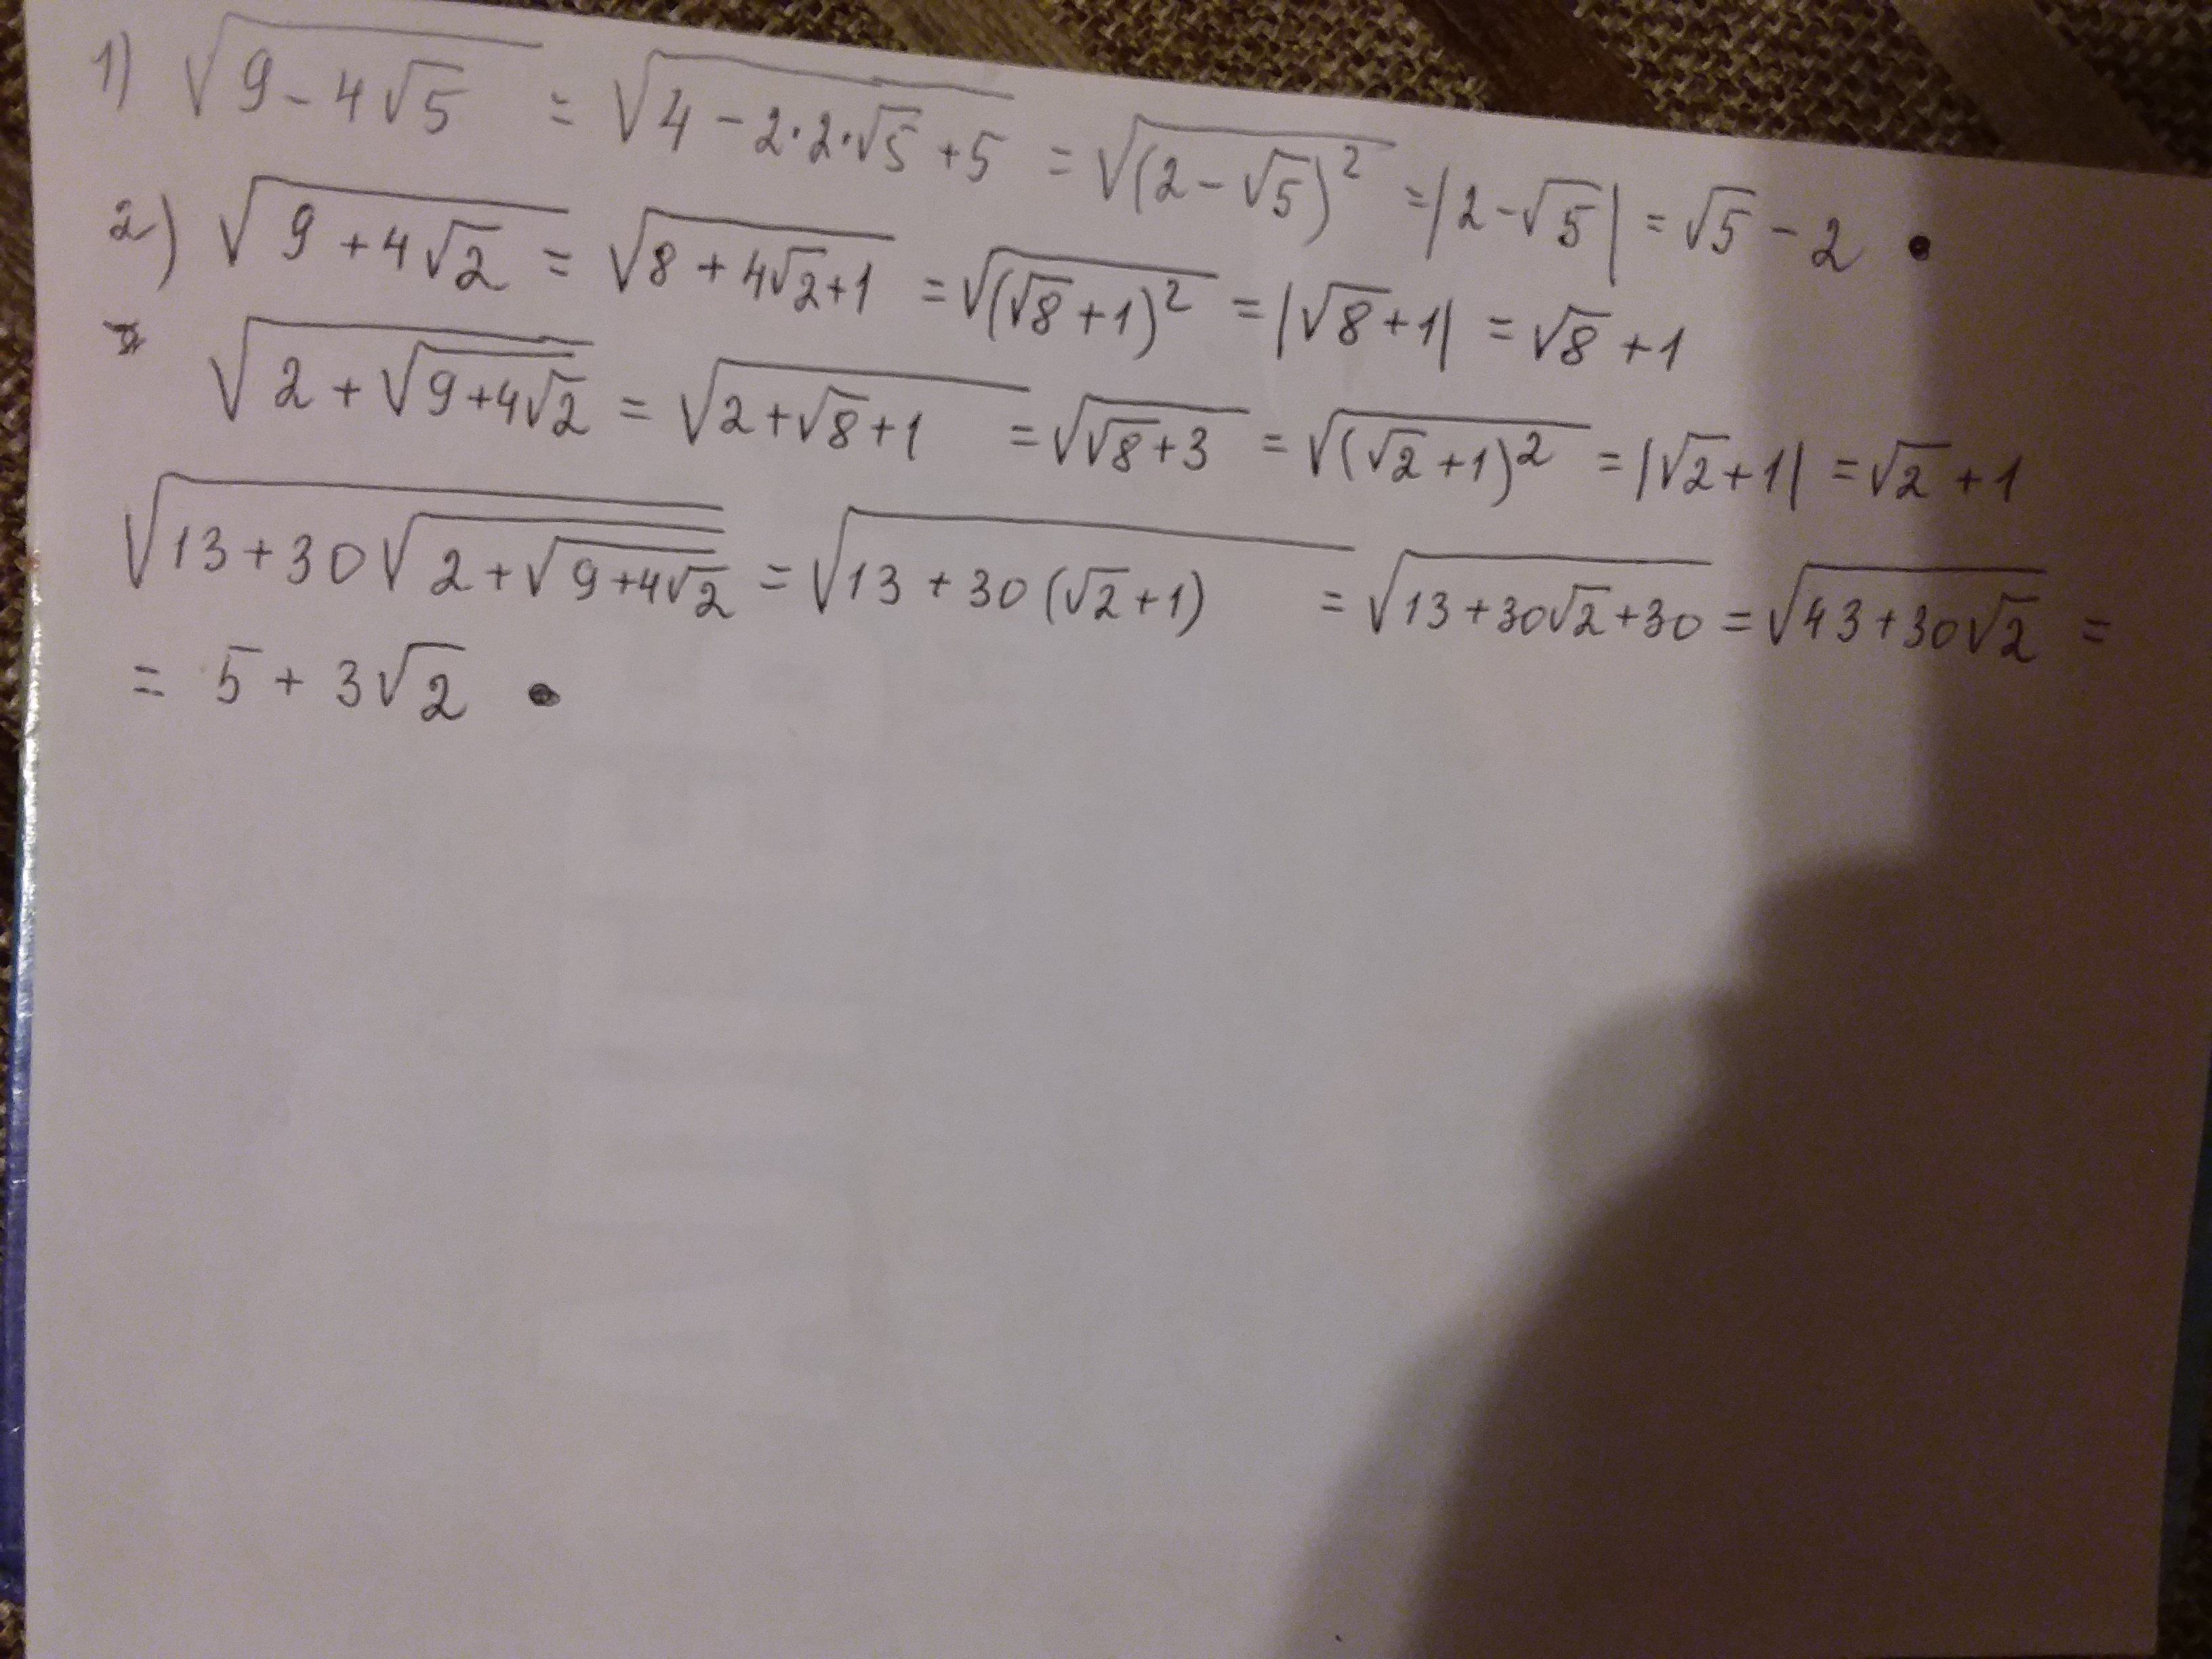 1) √(9 - 4√5) = √(4 - 2·2·√5 + 5) = √((2 - √5)²) = |2 - √5| = √5 - 2 •
2) √(9 + 4√2) = √(8 + 4√2 + 1) = √((√8 + 1)²) = |√8 + 1| = √8 + 1
√(2 + √(9 + 4√2)) = √(2 + √8 + 1) = √(√8 + 3) = √((√2 + 1)²) = |√2 + 1| = √2 + 1
√(13 + 30√(2 + √(9 + 4√2))) = √(13 + 30(√2 + 1)) = √(13 + 30√2 + 30) = √(43 + 30√2) =
= 5 + 3√2 •